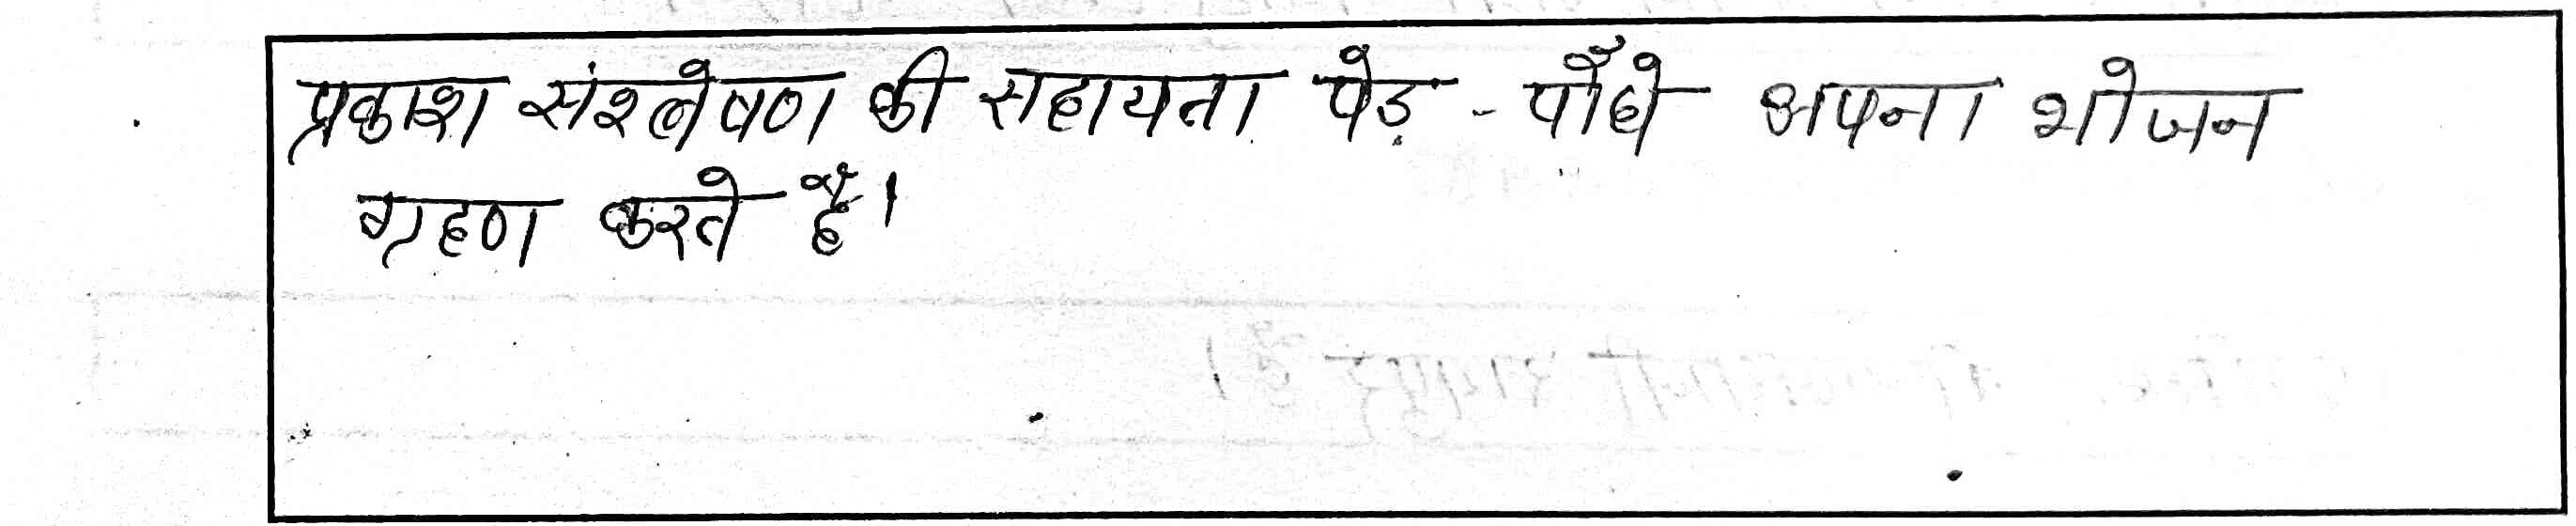 प्रकाश संश्लेषण की सहायता पेड़ - पौंधे अपना भोजन
ग्रहण करते हैं।